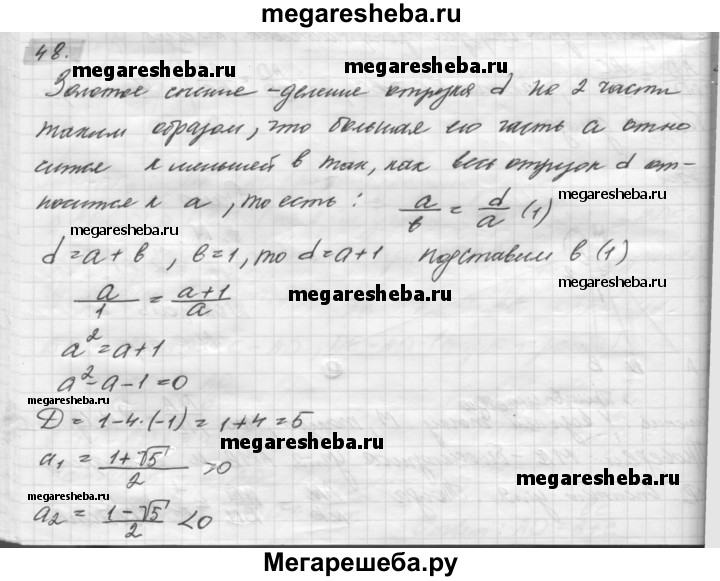 megaresheba.ru
48.
megaresheba.ru megaresheba.ru
Золотое сечение - деление отрезка d на 2 части
таким образом, что большая его часть a отно
сится к меньшей в так, как весь отрезок d от-
megaresheba.ru
носится к a, то есть: a/в = d/a (1)
megaresheba.ru
d = a + в, в = 1, то d = a + 1 подставим в (1)
megaresheba.ru
a/1 = a+1/a
megaresheba.ru
a² = a + 1
a² - a - 1 = 0
megaresheba.ru
D = 1 - 4·(-1) = 1 + 4 = 5
megaresheba.ru
a₁ = 1+√5/2 > 0
megaresheba.ru
megaresheba.ru
a₂ = 1-√5/2 < 0
Мегарешеба.ру